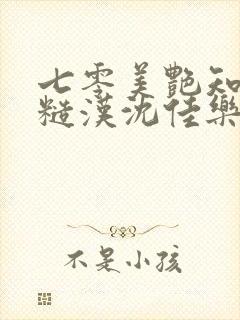 七零美艷知
糙漢沈佳樂
不是小孩